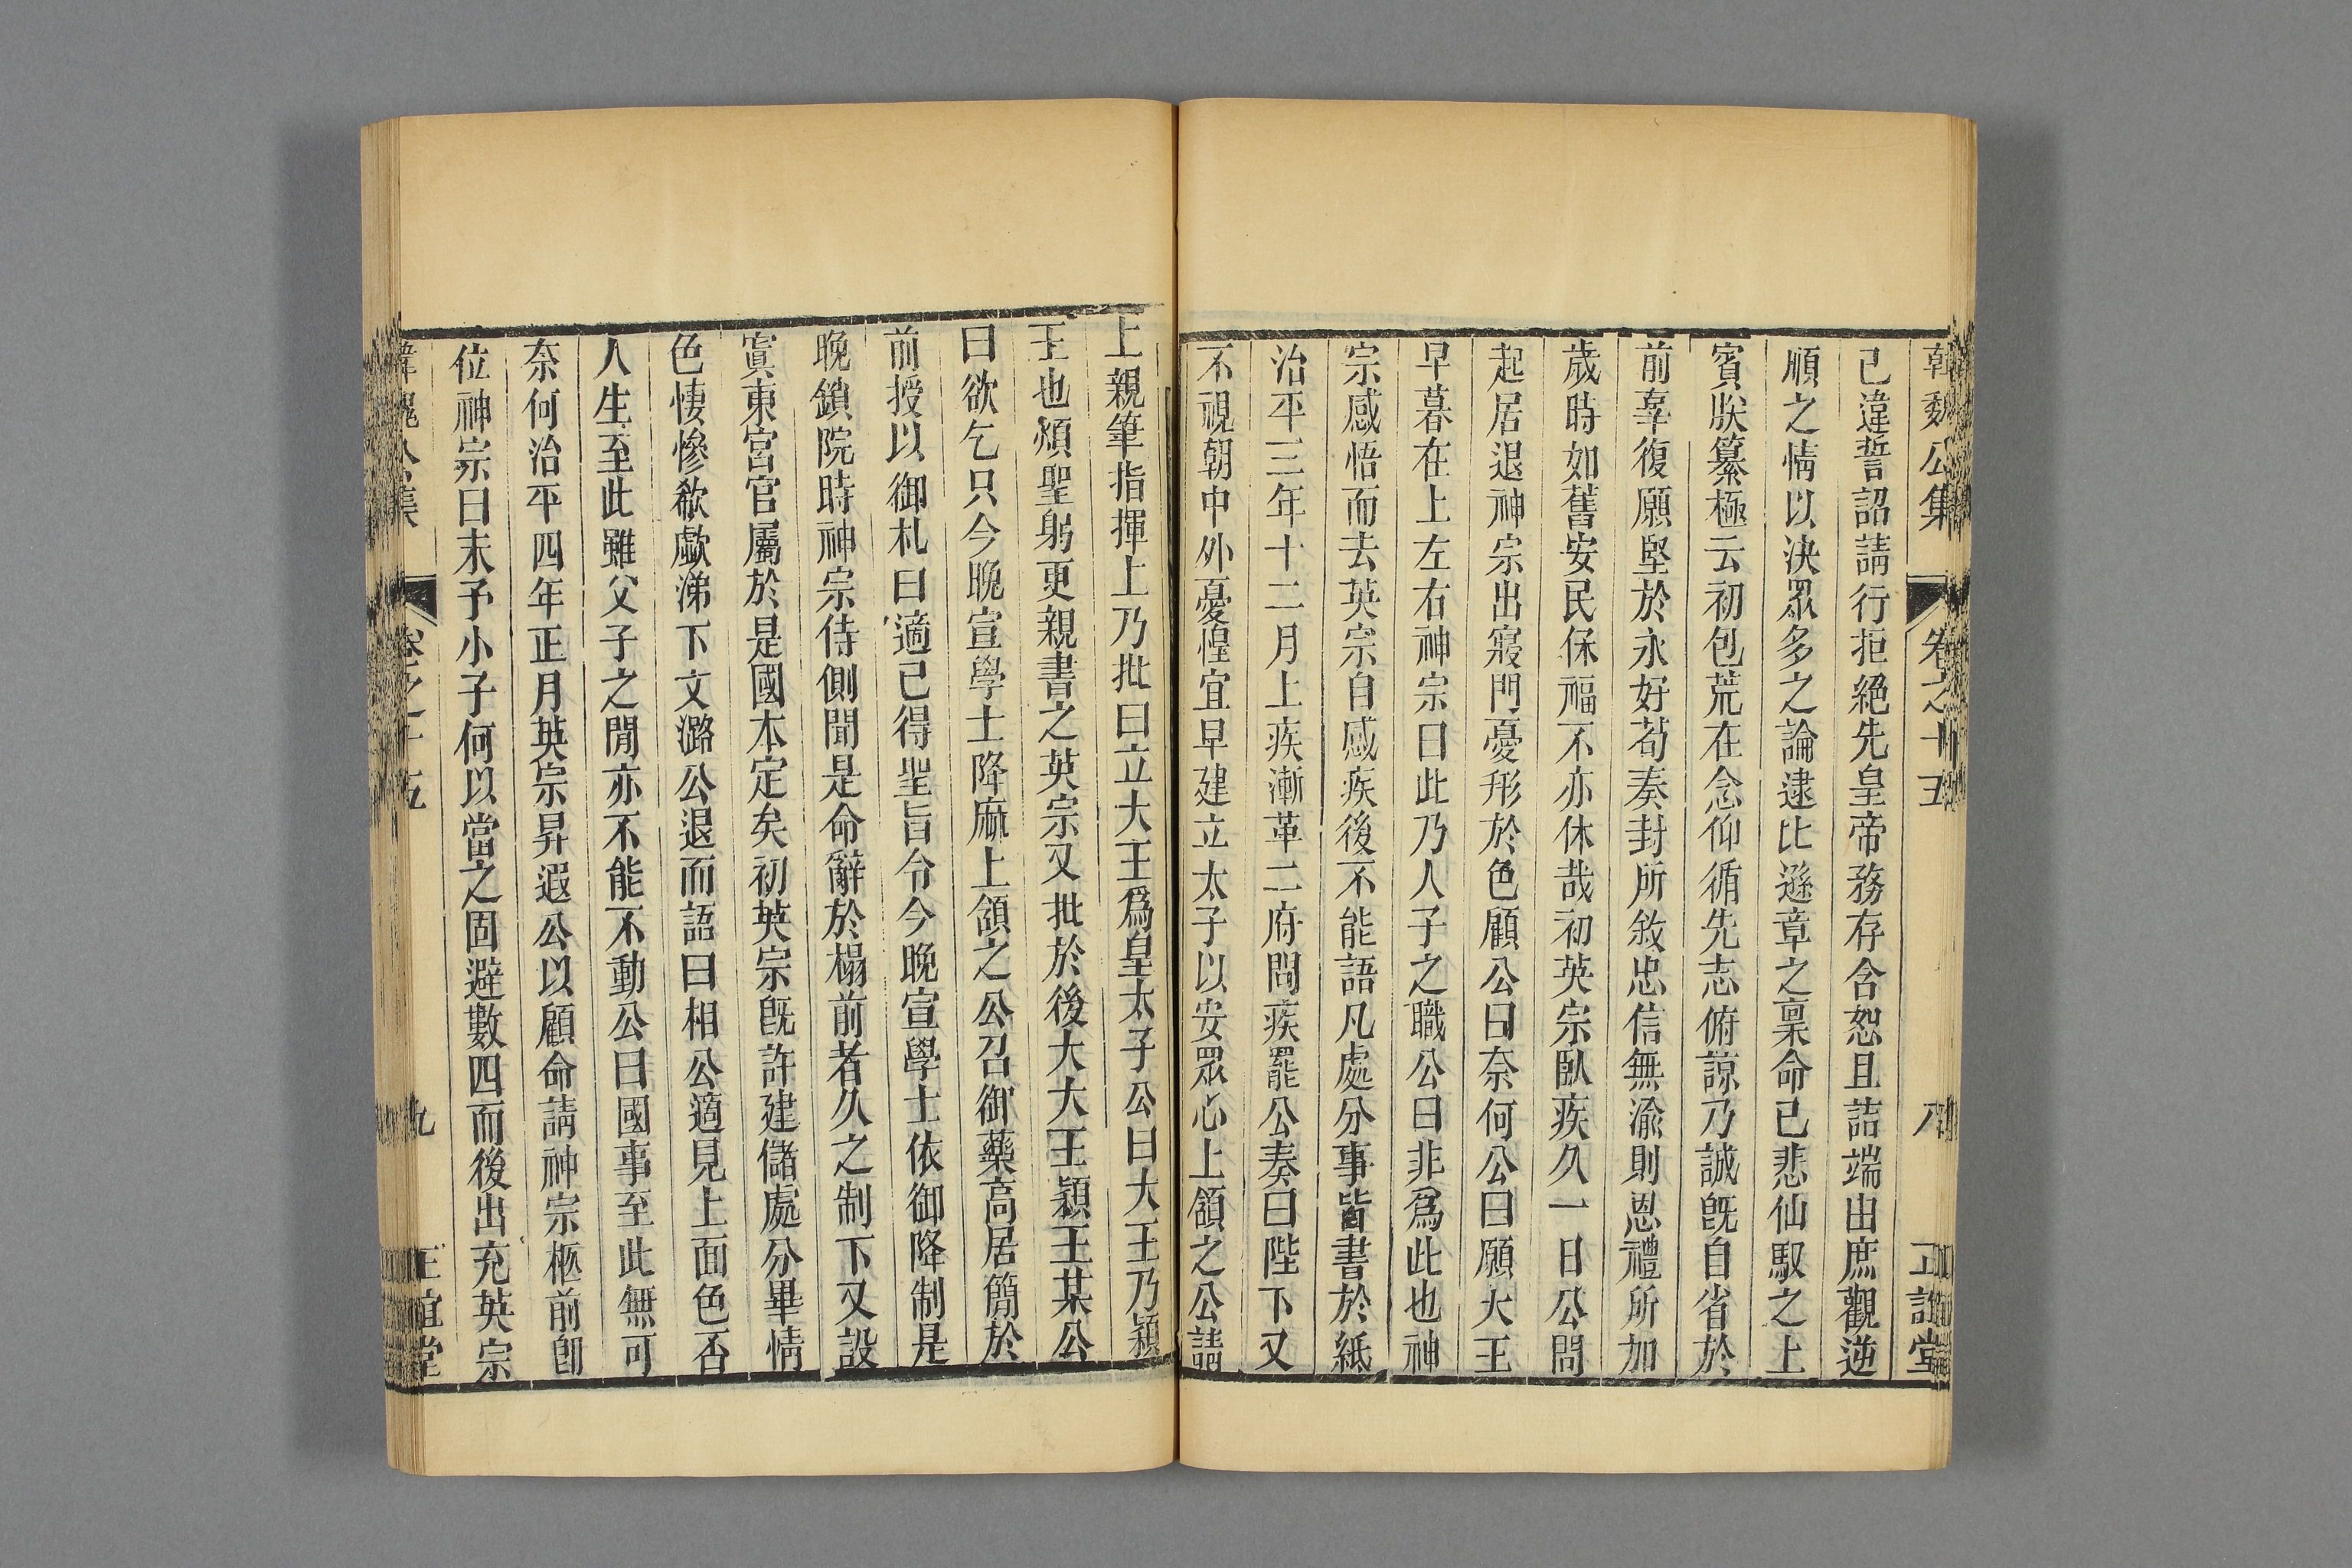 韓魏公集 卷之十五 八 正誼堂
己違誓詔請行拒絕先皇帝務存含恕且詰端由庶觀逆
順之情以決眾多之論逮比遜章之稟命已悲仙馭之上
賓朕纂極云初包荒在念仰循先志俯諒乃誠旣自省於
前辜復願堅於永好苟奏封所敘忠信無渝則恩禮所加
歲時如舊安民保福不亦休哉初英宗臥疾久一日公問
起居退神宗出寢門憂形於色顧公曰奈何公曰願大王
早暮在上左右神宗曰此乃人子之職公曰非爲此也神
宗感悟而去英宗自感疾後不能語凡處分事皆書於紙
治平三年十二月上疾漸革二府問疾罷公奏曰陛下又
不視朝中外憂惶宜早建立太子以安眾心上頷之公請
上親筆指揮上乃批曰立大王爲皇太子公曰大王乃潁
王也煩聖躬更親書之英宗又批於後大大王潁王某公
曰欲乞只今晚宣學士降麻上頷之公召御藥高居簡於
前授以御札曰適已得聖旨令今晚宣學士依御降制是
晚鎖院時神宗侍側聞是命辭於榻前者久之制下又設
寘東宮官屬於是國本定矣初英宗旣許建儲處分畢情
色悽慘欷歔涕下文潞公退而語曰相公適見上面色否
人生至此雖父子之閒亦不能不動公曰國事至此無可
奈何治平四年正月英宗昇遐公以顧命請神宗柩前卽
位神宗曰未予小子何以當之固避數四而後出充英宗
韓魏公集 卷之十五 九 正誼堂